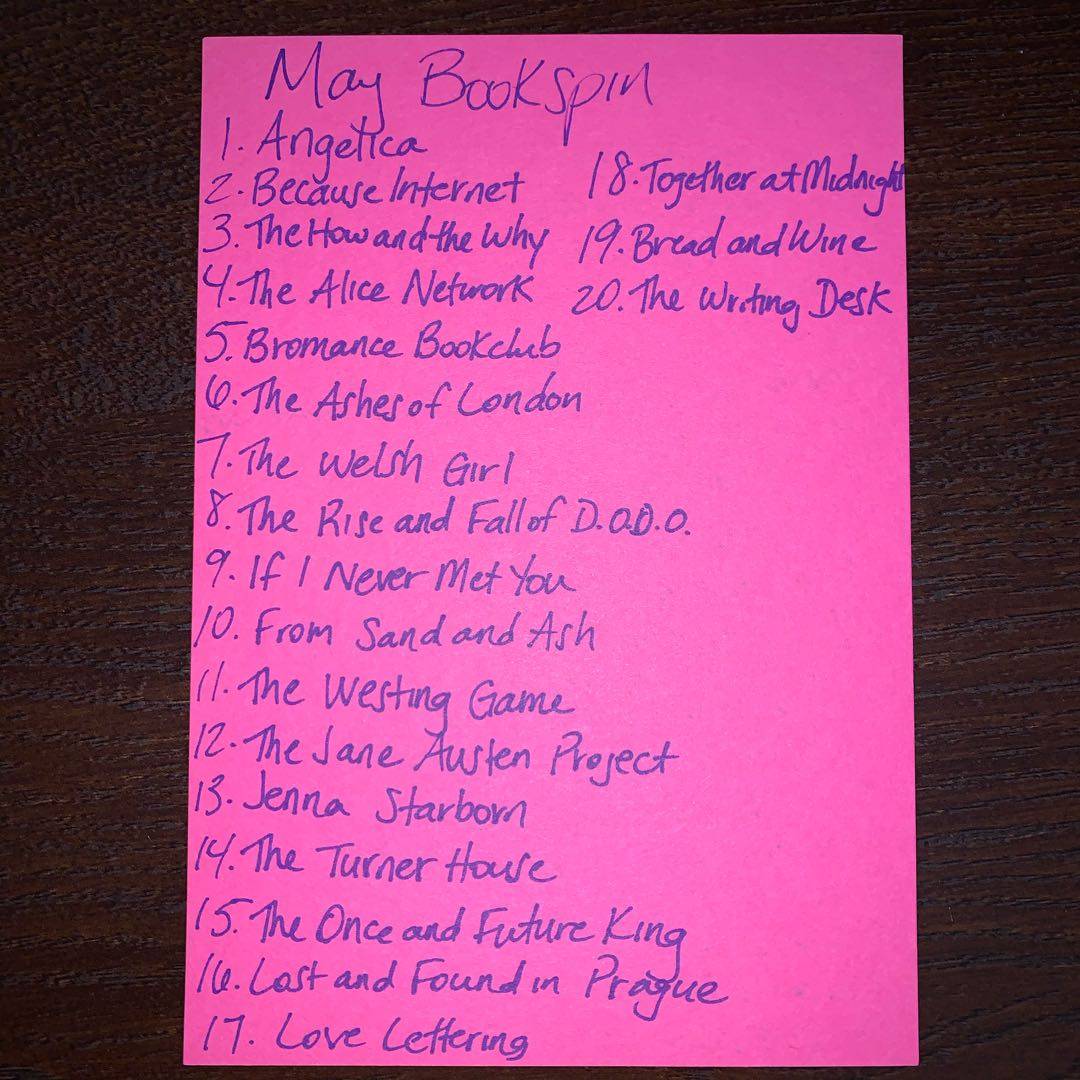 May Bookspin
1. Angelica
2. Because Internet
3. The How and the Why
4. The Alice Network
5. Bromance Bookclub
6. The Ashes of London
7. The Welsh Girl
8. The Rise and Fall of D.O.D.O.
9. If I Never Met You
10. From Sand and Ash
11. The Westing Game
12. The Jane Austen Project
13. Jenna Starborn
14. The Turner House
15. The Once and Future King
16. Lost and Found in Prague
17. Love Lettering
18. Together at Midnight
19. Bread and Wine
20. The Writing Desk